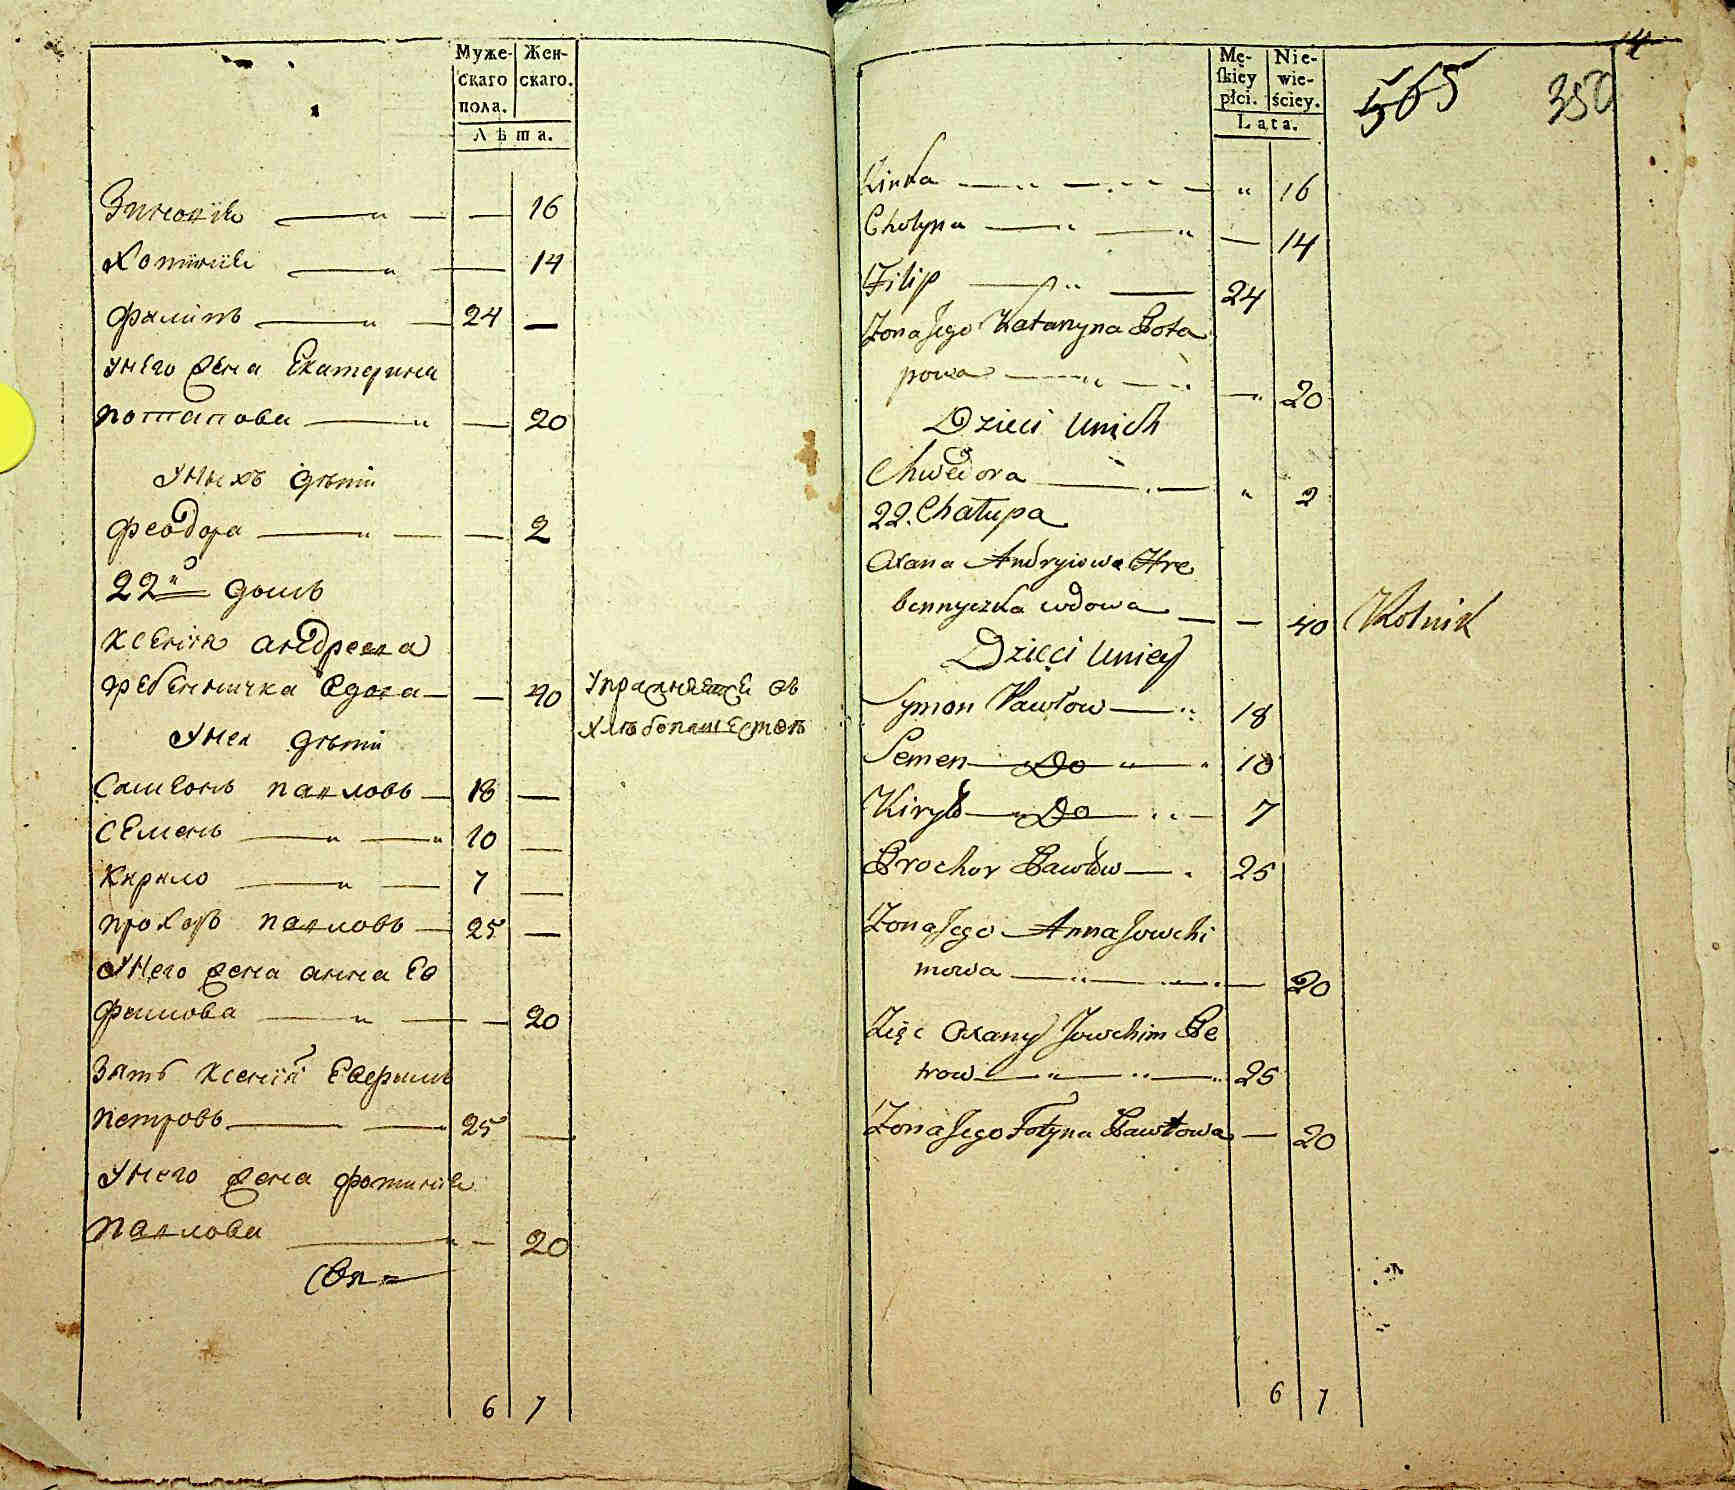 Муже- Жен-
скаго скаго.
пола.
Лѣта.
Зиновия — „ — — 16
Хотиния — „ — 14
Филипъ — „ — 24 —
У него жена Екатерина
Потапова — „ — 20
У нихъ дѣти
Феодора — „ — — 2
22й домъ
Ксения Андреева
Гребенничка вдова — — 40 Упражняется въ
хлѣбопашествѣ
У нея дѣти
Самсонъ Павловъ — 18 —
Семенъ — „ — „ 10 —
Кирило — „ — 7 —
Прохоръ Павловъ — 25 —
У него жена Анна Ев
фимова — „ — — 20
Зять Ксении Евфимъ
Петровъ — — 25 —
У него жена Фотиния
Павлова — „ — 20
6 7
Mę- Nie-
skiey wie-
płci. ściey.
Lata.
14
565 350
Zinka — „ — „ — „ 16
Chotyna — „ — „ — 14
Filip — „ — 24
Zona Jego Katarzyna Pota
powa — „ — „ — 20
Dzieci Unich
Chwedora — „ — „ 2
22. Chałupa
Oxana Andryiowa Hre
bennyczka wdowa — — 40 Rolnik
Dzieci Uniey
Symon Pawłow — „ 18
Semen — Do „ — „ 10
Kiryło — „ Do — „ — 7
Prochor Pawłow — „ 25
Zona Jego Anna Jowchi
mowa — „ — „ — 20
Zięć Oxany Jowchim Pe
trow — „ — „ — „ 25
Zona Jego Fotyna Pawłowa — 20
6 7